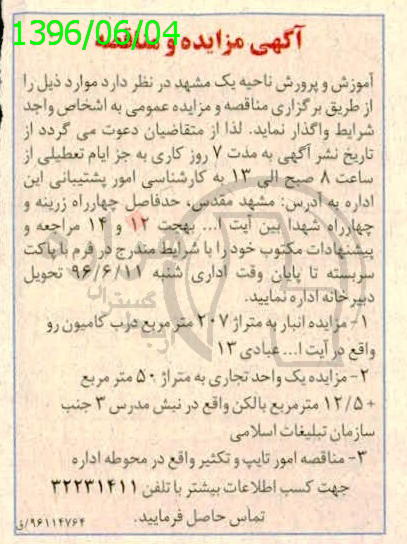 1396/06/04
آگهی مزایده و مناقصه
آموزش و پرورش ناحیه یک مشهد در نظر دارد موارد ذیل را
از طریق برگزاری مناقصه و مزایده عمومی به اشخاص واجد
شرایط واگذار نماید. لذا از متقاضیان دعوت می گردد از
تاریخ نشر آگهی به مدت ۷ روز کاری به جز ایام تعطیلی از
ساعت ۸ صبح الی ۱۳ به کارشناسی امور پشتیبانی این
اداره به آدرس: مشهد مقدس، حدفاصل چهارراه زرینه و
چهارراه شهدا بین آیت ا... بهجت ۱۲ و ۱۴ مراجعه و
پیشنهادات مکتوب خود را با شرایط مندرج در فرم با پاکت
سربسته تا پایان وقت اداری شنبه ۹۶/۶/۱۱ تحویل
دبیرخانه اداره نمایید.
۱- مزایده انبار به متراژ ۲۰۷ متر مربع درب کامیون رو
واقع در آیت ا... عبادی ۱۳
۲- مزایده یک واحد تجاری به متراژ ۵۰ متر مربع
+ ۱۲/۵ مترمربع بالکن واقع در نبش مدرس ۳ جنب
سازمان تبلیغات اسلامی
۳- مناقصه امور تایپ و تکثیر واقع در محوطه اداره
جهت کسب اطلاعات بیشتر با تلفن ۳۲۲۳۱۴۱۱
تماس حاصل فرمایید.
۹۶۱۱۴۷۶۴/ق